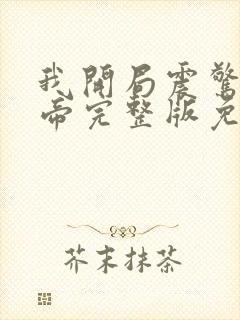 我開局震驚
帝完整版免
芥末抹茶